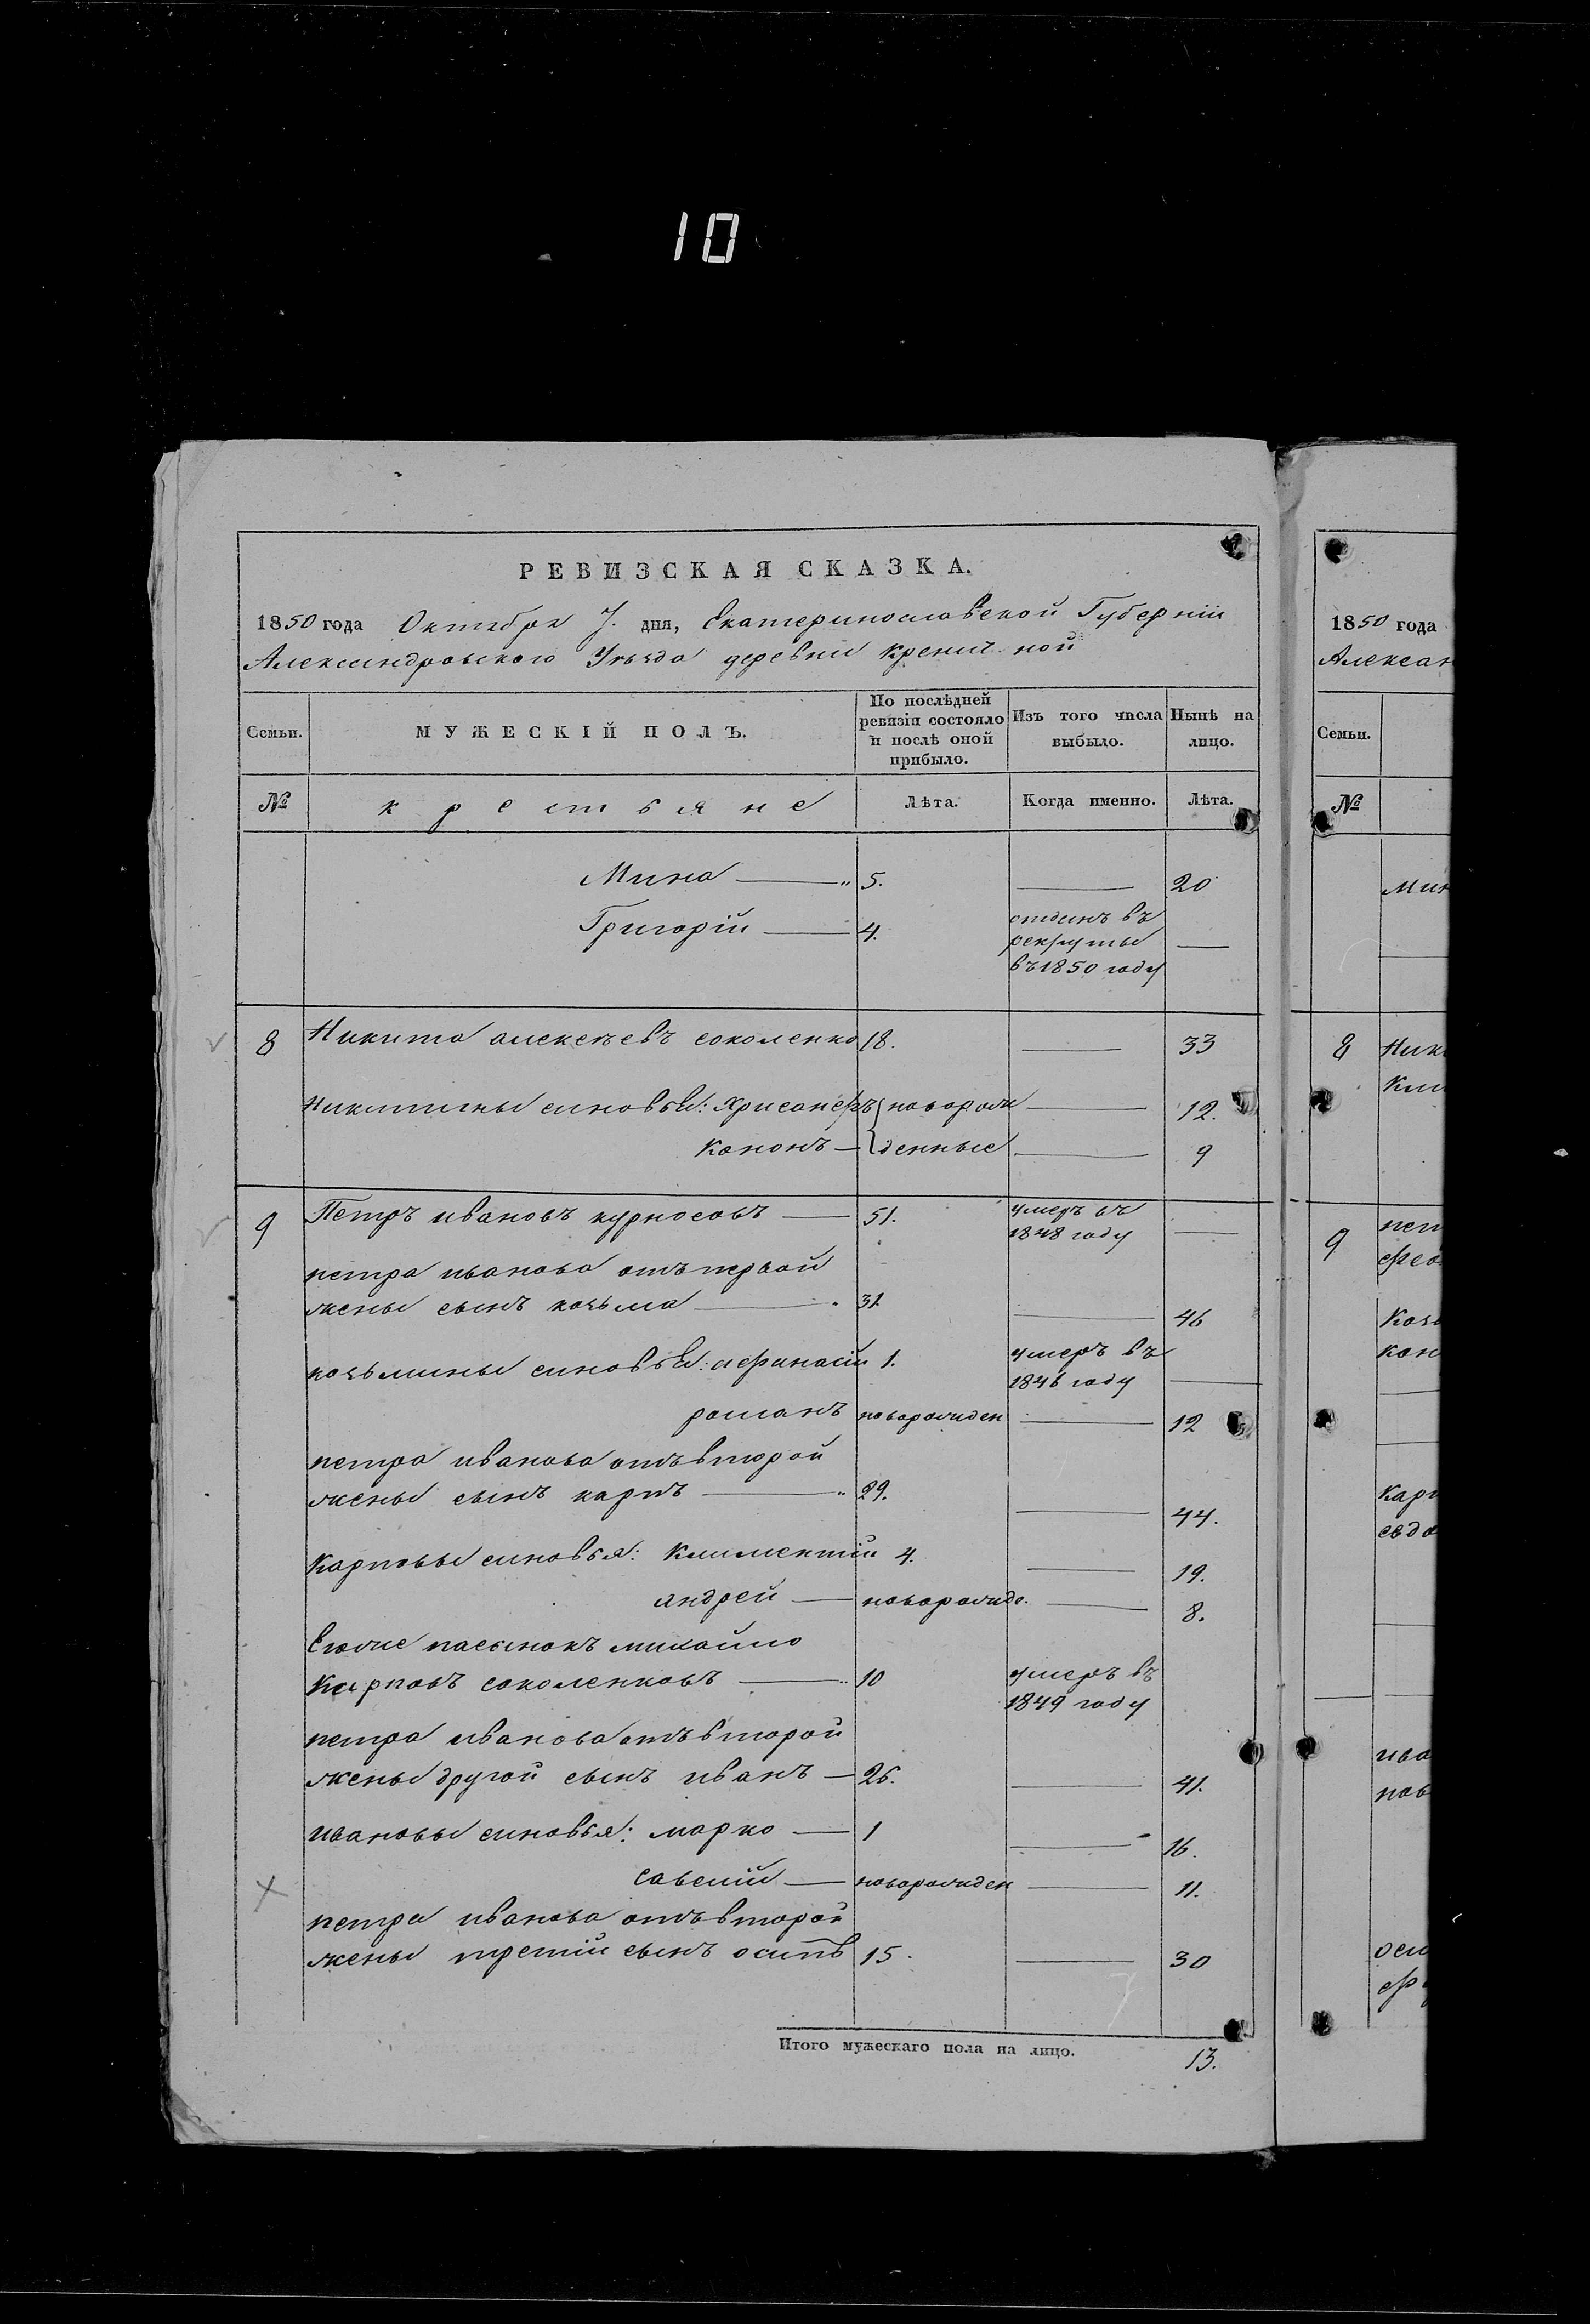 10
РЕВИЗСКАЯ СКАЗКА.
1850 года Октября 7. дня, Екатеринославской Губерніи
Александровского Уѣзда деревни Кренич ной
Семьи. МУЖЕСКІЙ ПОЛЪ. По послѣдней ревизіи состояло и послѣ оной прибыло. Изъ того числа выбыло. Нынѣ на лицо.
№ крестьяне Лѣта. Когда именно. Лѣта.
Мина — 5. — 20
Григорій — 4. отданъ въ рекруты въ 1850 году —
8 Никита алексѣевъ соколенко 18. — 33
Никитины сыновья: Хрисанфъ { новорож — 12.
Кононъ — { денные — 9
9 Петръ ивановъ курносовъ — 51. умеръ въ 1848 году —
петра иванова отъ первой
жены сынъ козьма — 31. — 46
козьмины сыновья: афанасій 1. умеръ въ 1846 году —
романъ новорожден — 12
петра иванова отъ второй
жены сынъ карпъ — 29. — 44.
Карповы сыновья: Климентій 4. — 19.
андрей — новорожде. — 8.
Егоже пасынокъ михайло
Карповъ соколенковъ — 10 умеръ въ 1849 году
петра иванова отъ второй
жены другой сынъ иванъ — 26. — 41.
ивановы сыновья: марко — 1 — 16.
савелій — новорожден — 11.
петра иванова отъ второй
жены третій сынъ осипъ 15. — 30
Итого мужескаго пола на лицо. 13.
1850 года
Алексан
Семьи.
№
Мин
8 Ник
Кли
9 пет
фео
Козь
кон
Карп
евдо
ива
пов
оси